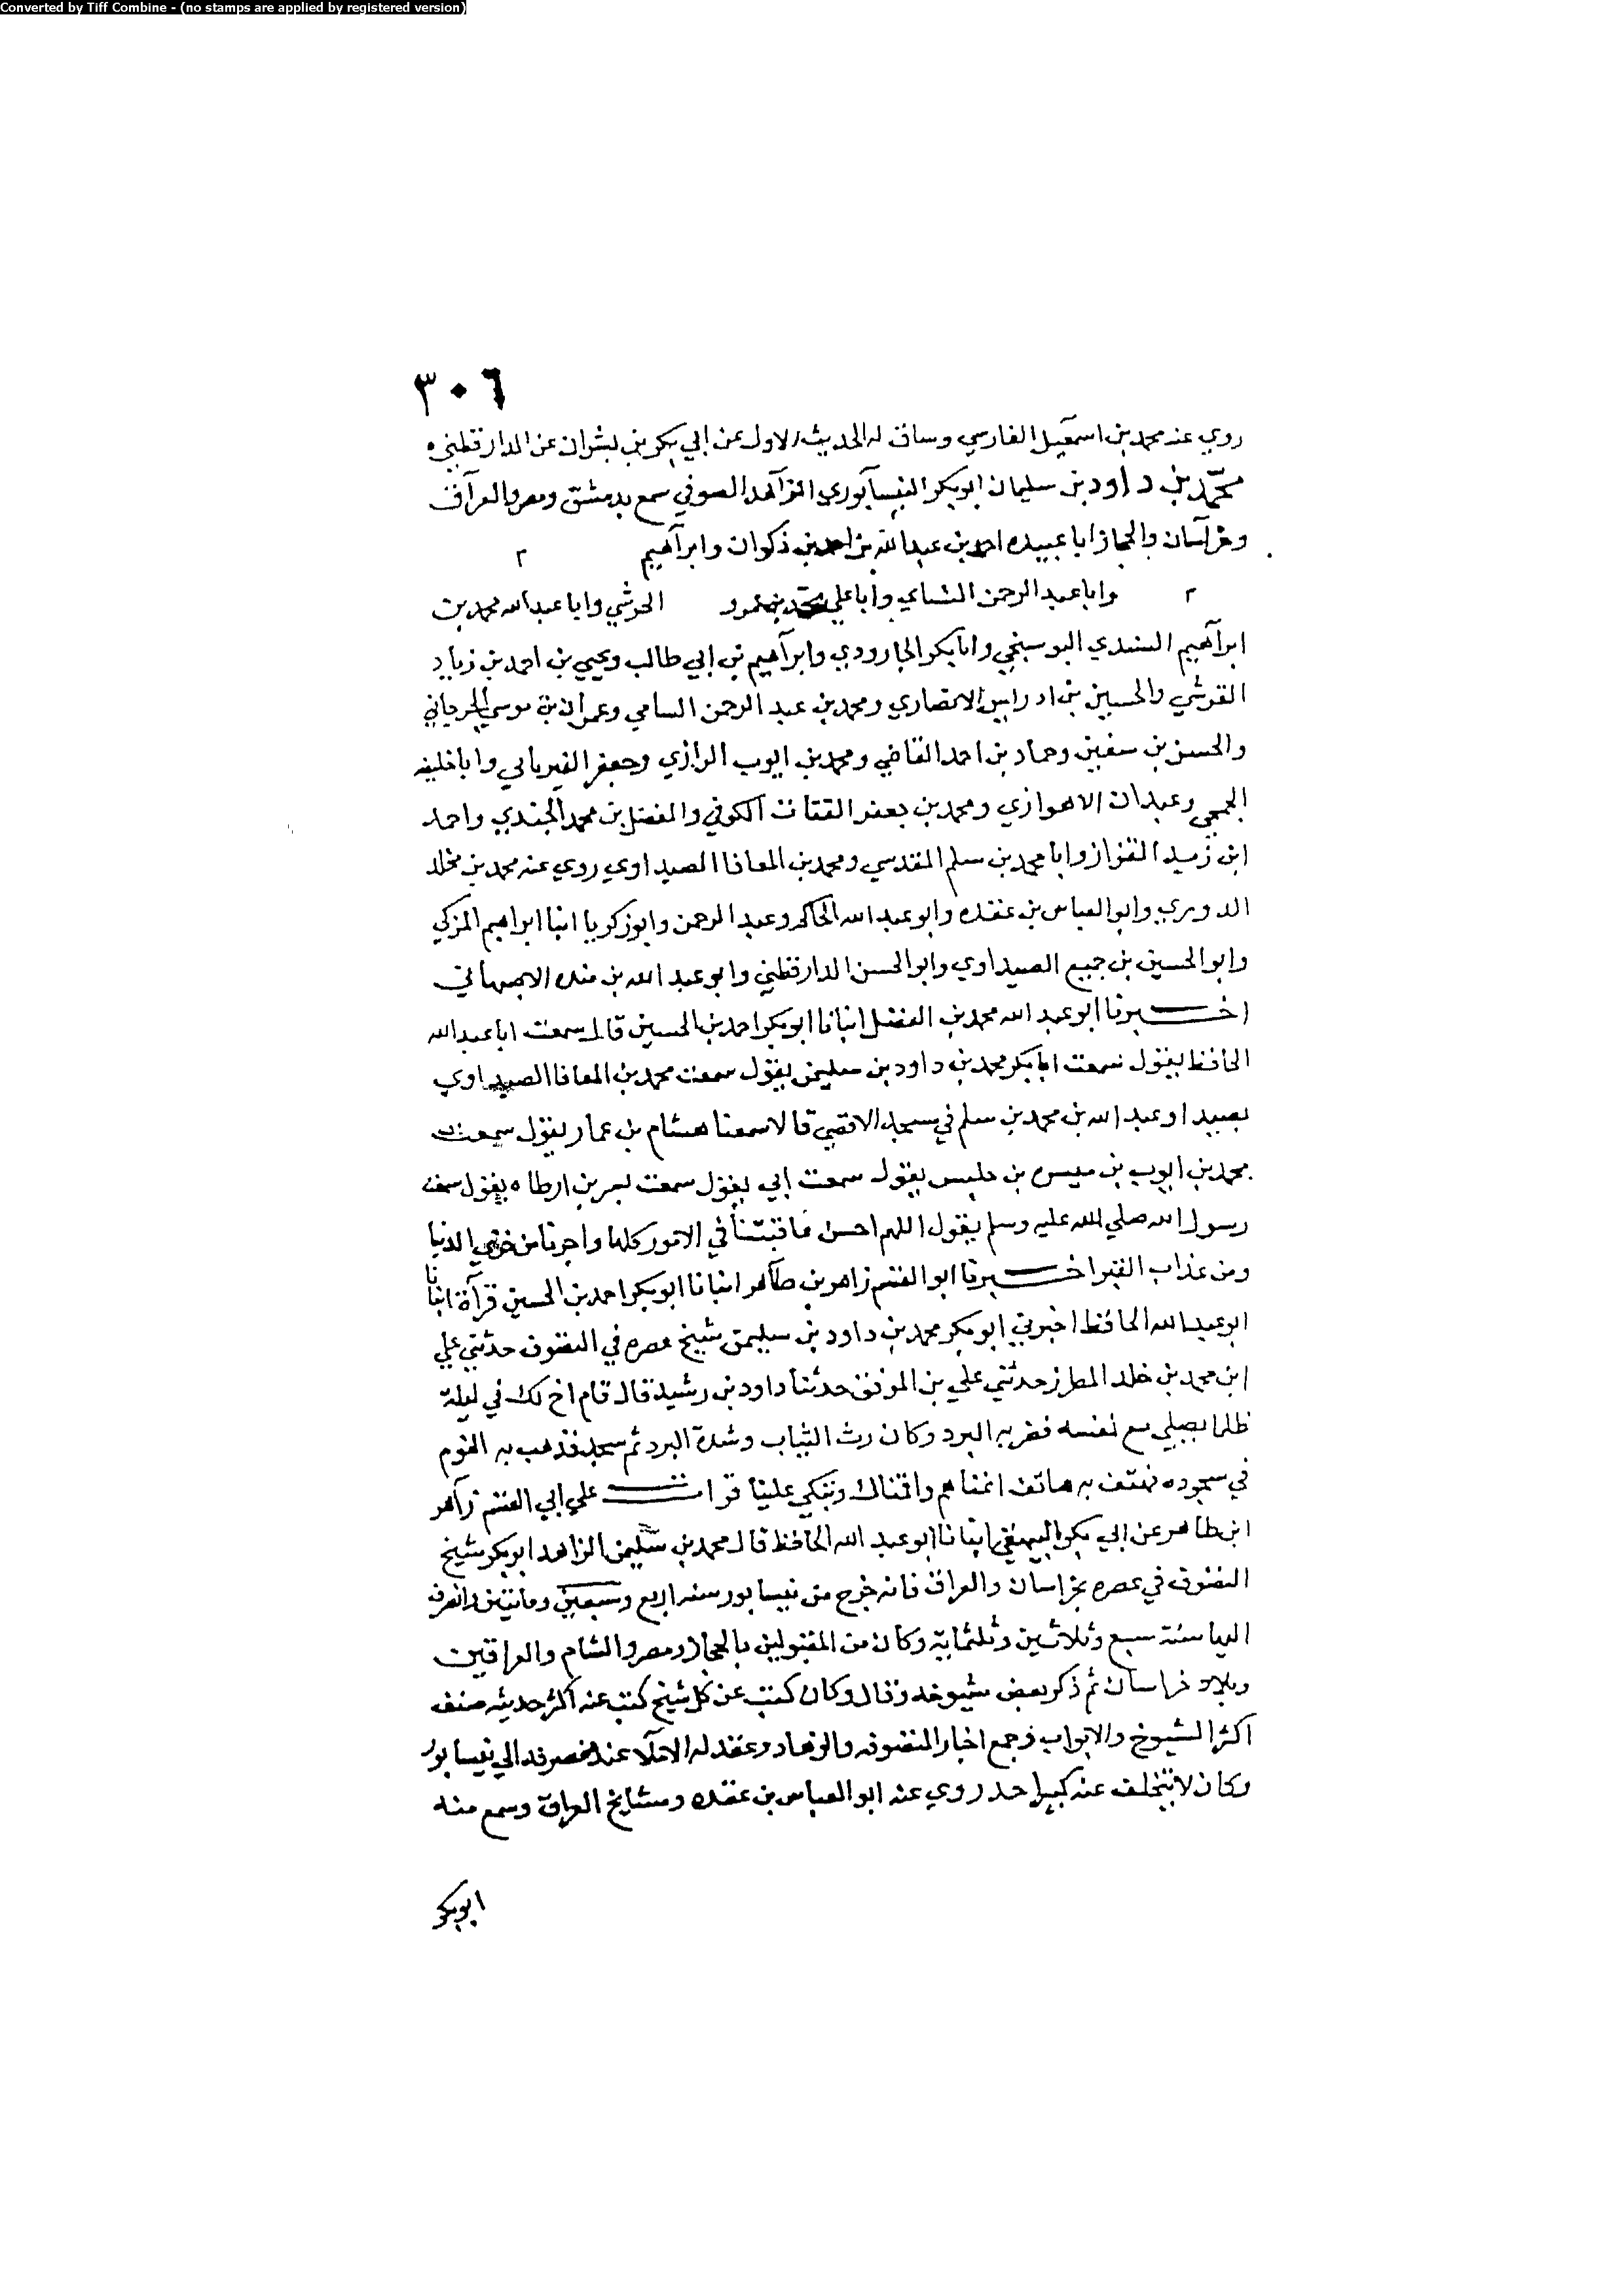 Converted by Tiff Combine - (no stamps are applied by registered version)
٣٠٦
روي عنه محمد بن اسمعيل الفارسي وساق له الحديث الاول عن ابي بكر بن بشران عن الدارقطني ه
محمد بن داود بن سليمان ابو بكر النيسابوري الزاهد الصوفي سمع بدمشق ومصر والعراق
وخراسان والحجاز ابا عبيده احمد بن عبد الله بن احمد بن ذكوان وابراهيم م
م وابا عبد الرحمن النساي وابا علي محمد بن عمرو الحرشي وابا عبد الله محمد بن
ابراهيم البوسنجي وابا بكر الجارودي وابراهيم بن ابي طالب ويحيي بن احمد بن زياد
القرشي والحسين بن ادريس الانصاري ومحمد بن عبد الرحمن السامي وعمران بن موسي الجرجاني
والحسن بن سفين وحماد بن احمد القاضي ومحمد بن ايوب الرازي وجعفر الفيريابي وابا خليفه
الجمحي وعبدان الاهوازي ومحمد بن جعفر القتات الكوفي والمفضل بن محمد الجندي واحمد
ابن زيد القزاز وابا محمد بن سلم المقدسي ومحمد بن المعافا الصيداوي روي عنه محمد بن مخلد
الدوري وابو العباس بن عقده وابو عبد الله الحاكم وعبد الرحمن وابو زكريا ابنا ابراهيم المزكي
وابو الحسين بن جميع الصيداوي وابو الحسن الدارقطني وابو عبد الله بن منده الاصبهاني
اخبرنا ابو عبد الله محمد بن الفضل انبانا ابو بكر احمد بن الحسين قال سمعت ابا عبد الله
الحافظ يقول سمعت ابا بكر محمد بن داود بن سليمن يقول سمعت محمد بن المعافا الصيداوي
بصيدا وعبد الله بن محمد بن سلم في مسجد الاقصي قالا سمعنا هشام بن عمار يقول سمعت
محمد بن ايوب بن ميسره بن حلبس يقول سمعت ابي يقول سمعت بسر بن ارطاه يقول سمعت
رسول الله صلي الله عليه وسلم يقول اللهم احسن عاقبتنا في الامور كلها واجرنا من خزي الدنيا
ومن عذاب القبر اخبرنا ابو القسم زاهر بن طاهر انبانا ابو بكر احمد بن الحسين قرآة انبانا
ابو عبد الله الحافظ اخبرني ابو بكر محمد بن داود بن سليمن شيخ عصره في التصوف حدثني علي
ابن محمد بن خلد المطرز حدثني علي بن الموفق حدثنا داود بن رشيد قال قام اخ لك في ليلة
ظلما يصلي مع نفسه فضربه البرد وكان رث الثياب وشدة البرد ثم سجد فذهب به النوم
في سجوده فهتف به هاتف انمناهم واقمناك وتبكي علينا قرات علي ابي القسم زاهر
ابن طاهر عن ابي بكر البيهقي انبانا ابو عبد الله الحافظ قال محمد بن سليمن الزاهد ابو بكر شيخ
التصوف في عصره بخراسان والعراق فانه خرج من نيسابور سنه اربع وتسعين ومائتين وانصرف
اليها سنة سبع وثلاثين وثلثماية وكان من المقبولين بالحجاز ومصر والشام والعراقين
وبلاد خراسان ثم ذكر بعض شيوخه وقال وكان كتب عن كل شيخ كتب عنه اكثر حديثه صنف
اكثر الشيوخ والابواب وجمع اخبار المتصوفه والزهاد وعقد له الاملا عند منصرفه الي نيسابور
وكان لا يتخلف عنه كبير احد روي عنه ابو العباس بن عقده ومشايخ العراق وسمع منه
ابو بكر